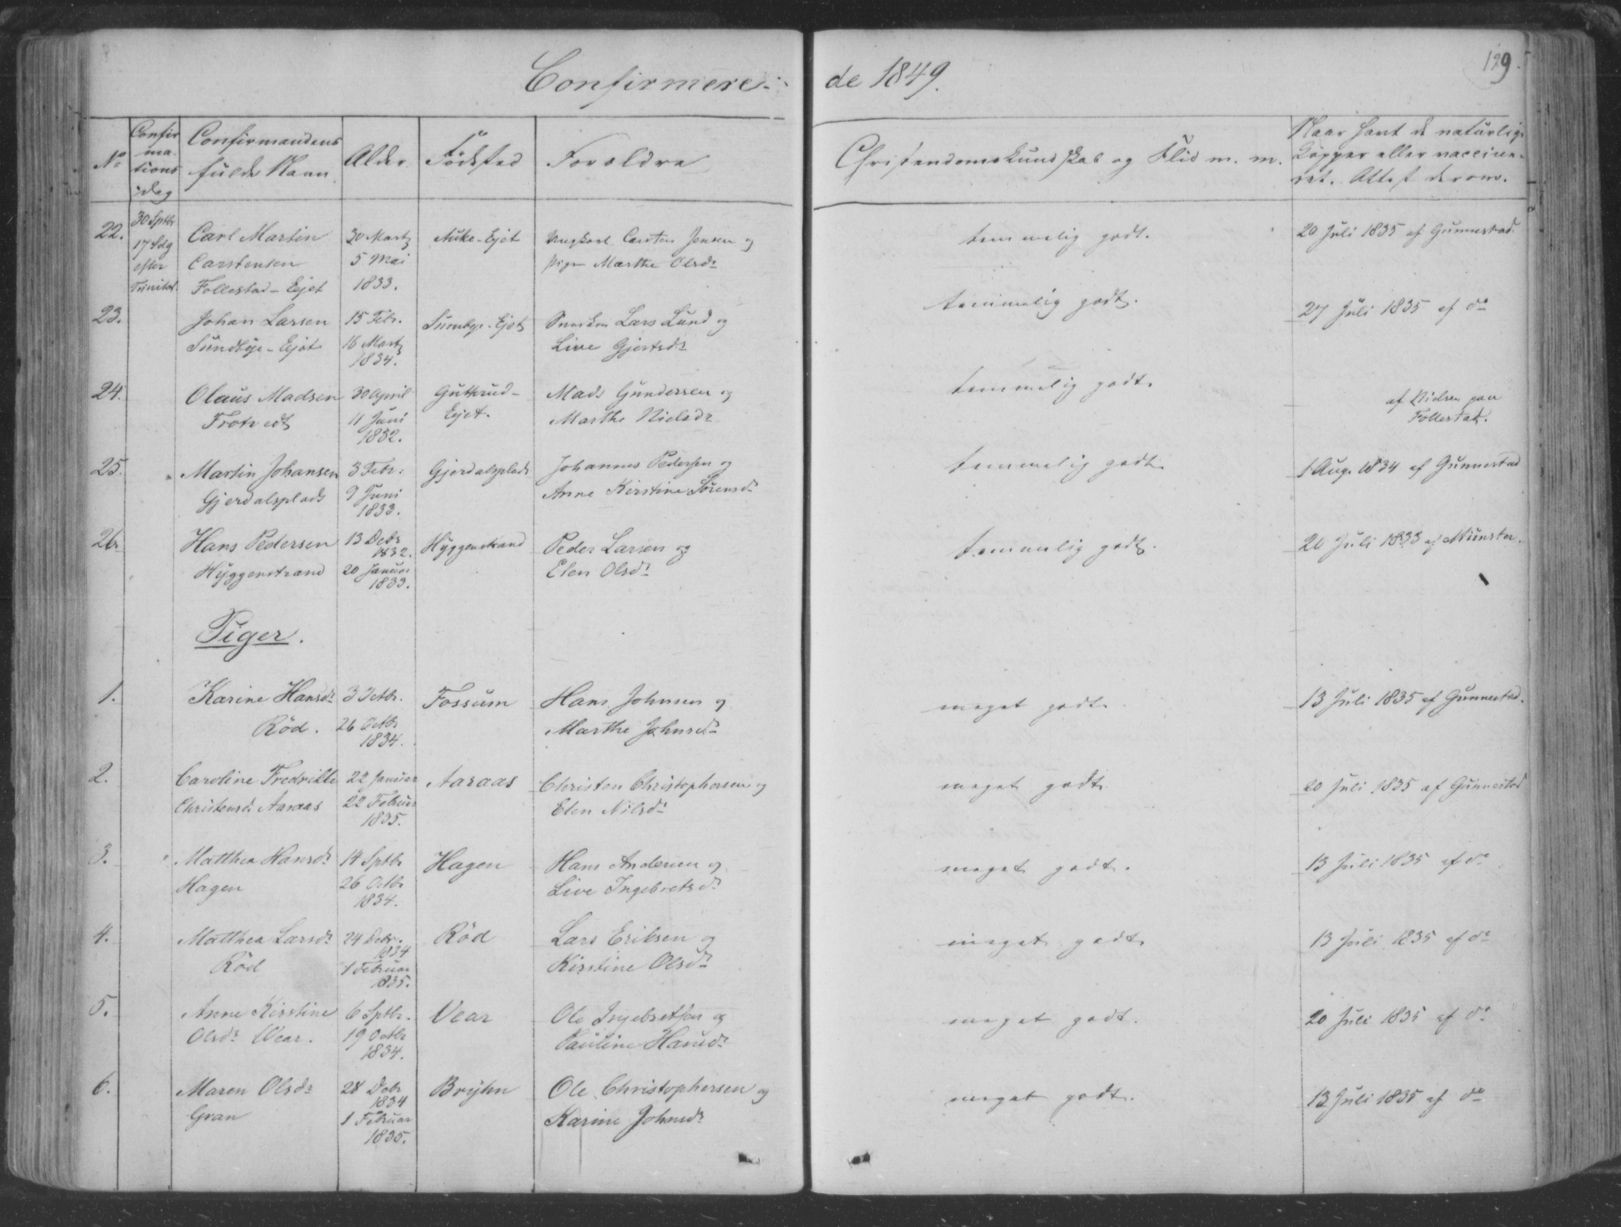 Confirmere-
de 1849.
129.
No
Confir
ma
tions
dag
Confirmandens
fulde Navn
Alder
Födsted
Forældre
Christendomskundskab og Flid m. m.
Naar havt de naturlige
Kopper eller vaccine-
ret. Attest derom.
22.
30 Sptbr
17 Sdg
efter
Trinitat.
Carl Martin
Carstensen
Follestad-Ejet
30 Martz
5 Mai
1833.
Auke-Ejet
Ungkarl Carsten Jensen og
Pige Marthe Olsdr
temmelig godt.
20 Juli 1835 af Gunnestad.
23.
Johan Larsen
Sundbye-Ejet
15 Febr.
16 Martz
1834.
Sundbye-Ejet
Lars Lund og
Live Gjertsdr
temmelig godt.
27 Juli 1835 af do
24.
Olaus Madsen
Trotvedt
30 April
11 Juni
1832.
Guttrud-
Ejet.
Mads Gundersen og
Marthe Nielsdr
temmelig godt.
af Nielsen paa
Follestad.
25.
Martin Johansen
Gjerdalsplads
3 Febr.
9 Juni
1833.
Gjerdalsplads
Johannes Pedersen og
Anne Kirstine Sörensdr
temmelig godt.
1 Aug. 1834 af Gunnestad
26.
Hans Pedersen
Hyggenstrand
13 Decbr
1832.
20 Januar
1833.
Hyggenstrand
Peder Larsen og
Elen Olsdr
temmelig godt.
20 Juli 1833 af Münster.
Piger.
1.
Karine Hansdr
Röd.
3 Octbr.
26 Octbr
1834.
Fossum
Hans Johnsen og
Marthe Johnsdr
meget godt.
13 Juli 1835 af Gunnestad.
2.
Caroline Fredrikke
Christensdr Aaraas
22 Januar
22 Februar
1835.
Aaraas
Christen Christophersen og
Elen Nilsdr
meget godt.
20 Juli 1835 af Gunnestad
3.
Matthea Hansdr
Hagen
14 Sptbr
26 Octbr
1834.
Hagen
Hans Andersen og
Live Ingebretsdr
meget godt.
13 Juli 1835 af do
4.
Matthea Larsdr
Röd
24 Decbr.
1834
1 Februar
1835.
Röd
Lars Eriksen og
Kirstine Olsdr
meget godt.
13 Juli 1835 af do
5.
Anne Kirstine
Olsdr Vear.
6 Sptbr.
19 Octbr
1834.
Vear
Ole Ingebretsen og
Pauline Hansdr
meget godt.
20 Juli 1835 af do
6.
Maren Olsdr
Gran
28 Decbr
1834
1 Februar
1835.
Brÿhn
Ole Christophersen og
Karine Johnsdr
meget godt.
13 Juli 1835 af do